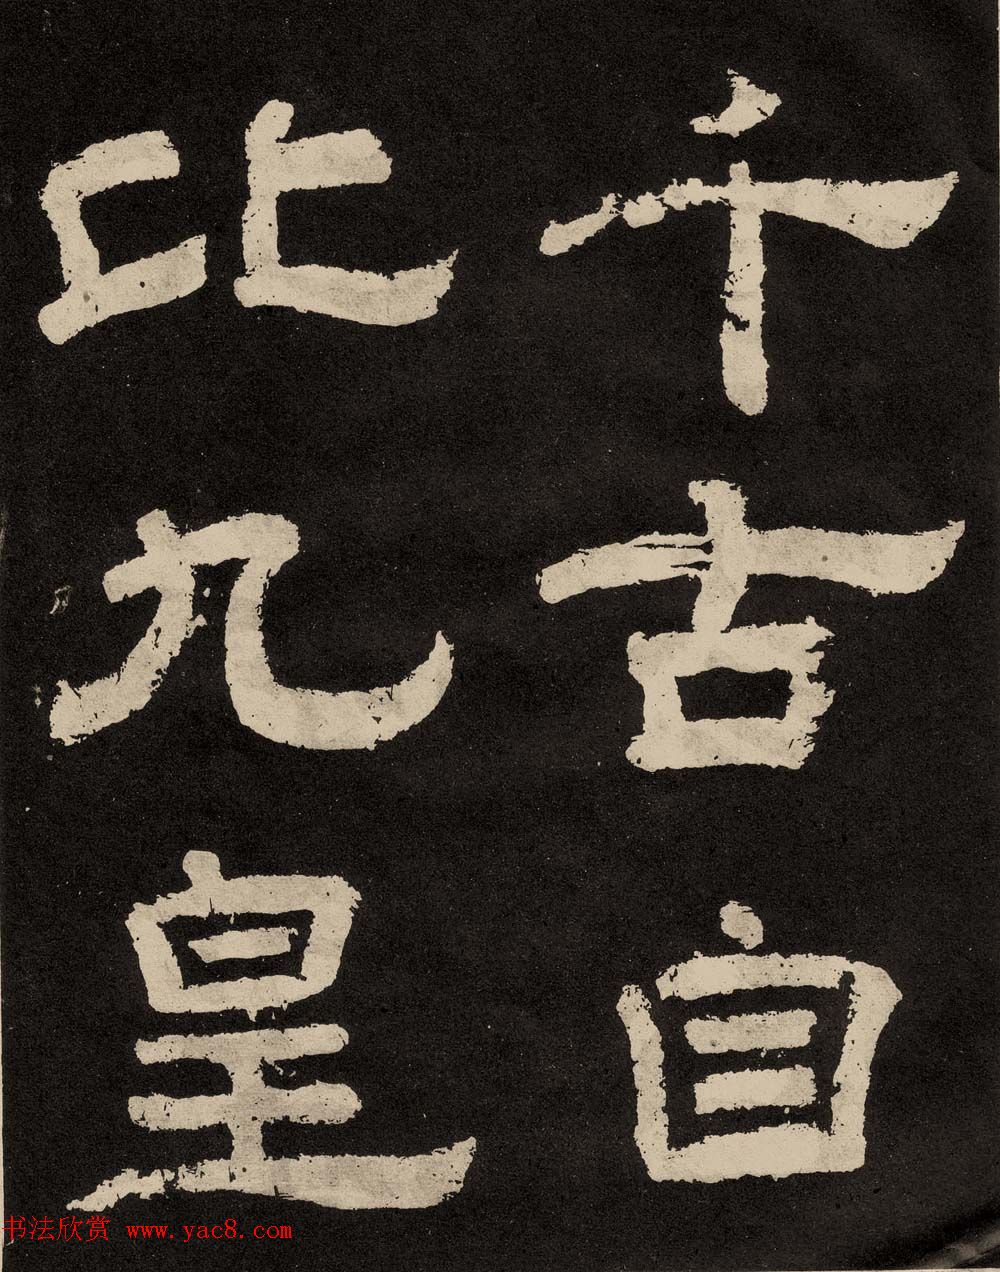 千古自
比九皇
书法欣赏 www.yac8.com